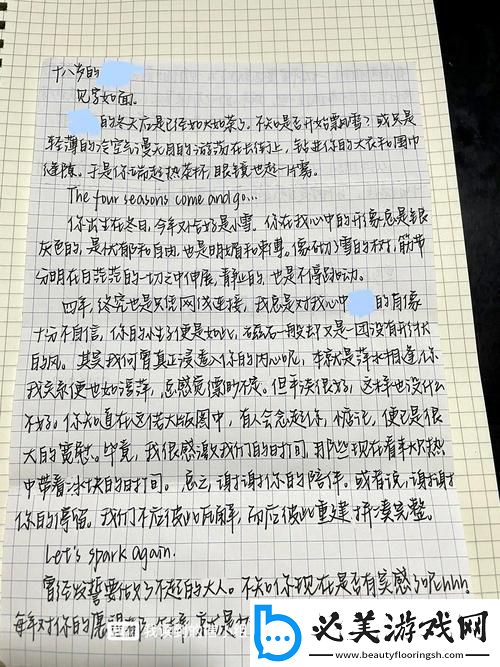 十八岁的
见字如面。
的冬天应是已经如火如荼了。不知是否开始飘雪？或只是
轻薄的冷空气漫无目的游荡在长街上，钻进你的大衣和围巾
缝隙。于是你端起热茶杯，眼镜也起一片雾。
The four seasons come and go...
你出生在冬日，今年对应好是小雪。你在我心中的形象总是银
灰色的，是忧郁和自由，也是明媚和柬。像砌雪的树，筋节
分明在白茫茫的一切之中伸展，静止的，也是不得动。
四年，终究也是只凭网线连接，我总是对我心中 的肖像
十分不自信，你的性子便是如此，磁石一般却又是一团没有形状
的风。其实我何曾真正浸透入你的内心呢，本就是萍水相逢，你
我关系便也如浮萍，总感觉飘渺不定。但平淡很好，这样也没什么
不好。你知道在这偌大版图中，有人会念起你，惦记，便已是很
大的宽慰。毕竟，我很感激我们的时间，那些现在看来水热
中带着冰块的时间。总之，谢谢你的陪伴。或者说，谢谢
你的停留。我们不应彼此瓦解，而应彼此重建，拼凑完整。
Let's spark again.
曾经发誓要做了不起的大人。不知你现在是否有实感了呢hhh.
每年对你的愿望
必美游戏网
www.beautyflooringsh.com